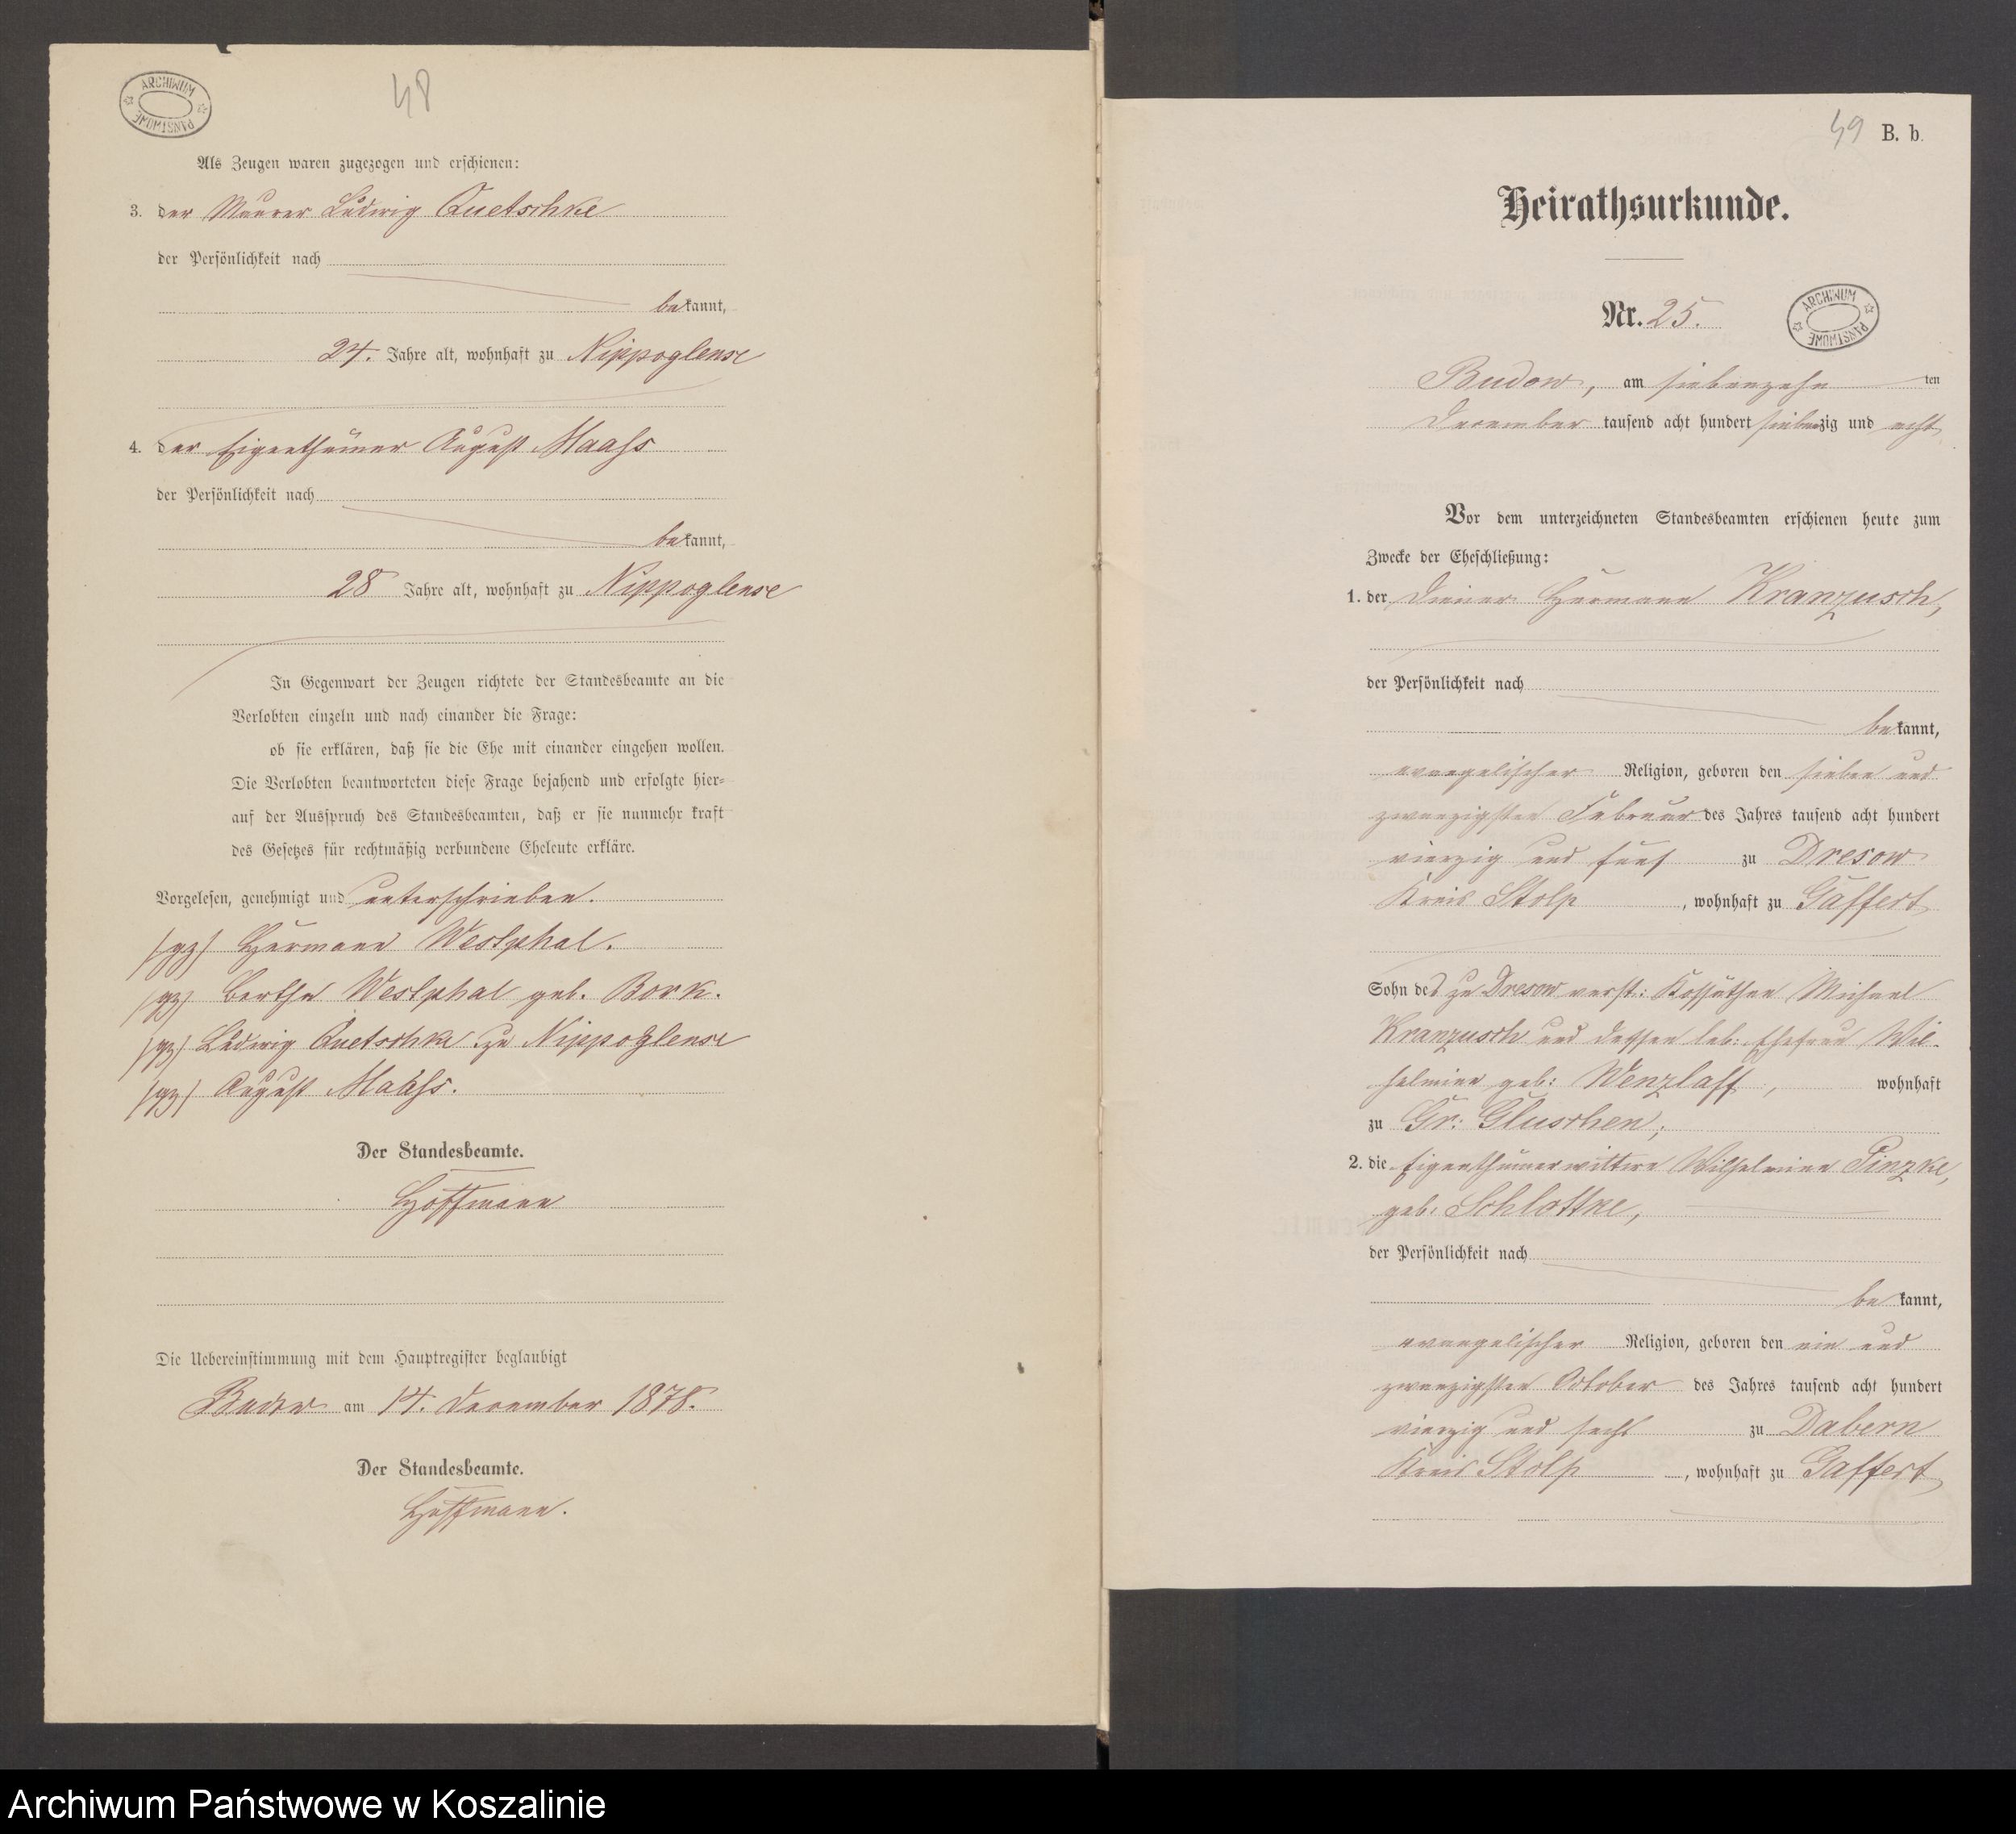 ARCHIWUM PAŃSTWOWE
48
Als Zeugen waren zugezogen und erschienen:
3. der Maurer Ludwig Quetschke
der Persönlichkeit nach
bekannt,
24. Jahre alt, wohnhaft zu Nippoglense
4. der Eigenthümer August Maahs
der Persönlichkeit nach
bekannt,
28 Jahre alt, wohnhaft zu Nippoglense
In Gegenwart der Zeugen richtete der Standesbeamte an die
Verlobten einzeln und nach einander die Frage:
ob sie erklären, daß sie die Ehe mit einander eingehen wollen.
Die Verlobten beantworteten diese Frage bejahend und erfolgte hier-
auf der Ausspruch des Standesbeamten, daß er sie nunmehr kraft
des Gesetzes für rechtmäßig verbundene Eheleute erkläre.
Vorgelesen, genehmigt und unterschrieben.
(gz) Hermann Westphal.
(gz) Bertha Westphal geb. Bork.
(gz) Ludwig Quetschke zu Nippoglense
(gz) August Maahs.
Der Standesbeamte.
Hoffmann
Die Uebereinstimmung mit dem Hauptregister beglaubigt
Budow am 14. December 1878.
Der Standesbeamte.
Hoffmann.
49 B. b.
Heirathsurkunde.
Nr. 25.
ARCHIWUM PAŃSTWOWE
Budow, am siebenzehn ten
December tausend acht hundert siebenzig und acht
Vor dem unterzeichneten Standesbeamten erschienen heute zum
Zwecke der Eheschließung:
1. der Diener Hermann Kranzusch,
der Persönlichkeit nach
bekannt,
evangelischer Religion, geboren den sieben und
zwanzigsten Februar des Jahres tausend acht hundert
vierzig und fünf zu Dresow
Kreis Stolp, wohnhaft zu Gaffert
Sohn des zu Dresow verst: Kossäthen Michael
Kranzusch und dessen leb: Ehefrau Wil-
helmine geb: Wenzlaff, wohnhaft
zu Gr: Gluschen;
2. die Eigenthümerwittwe Wilhelmine Pinzke,
geb: Schlottke,
der Persönlichkeit nach
bekannt,
evangelischer Religion, geboren den ein und
zwanzigsten October des Jahres tausend acht hundert
vierzig und sechs zu Dabern
Kreis Stolp, wohnhaft zu Gaffert
Archiwum Państwowe w Koszalinie